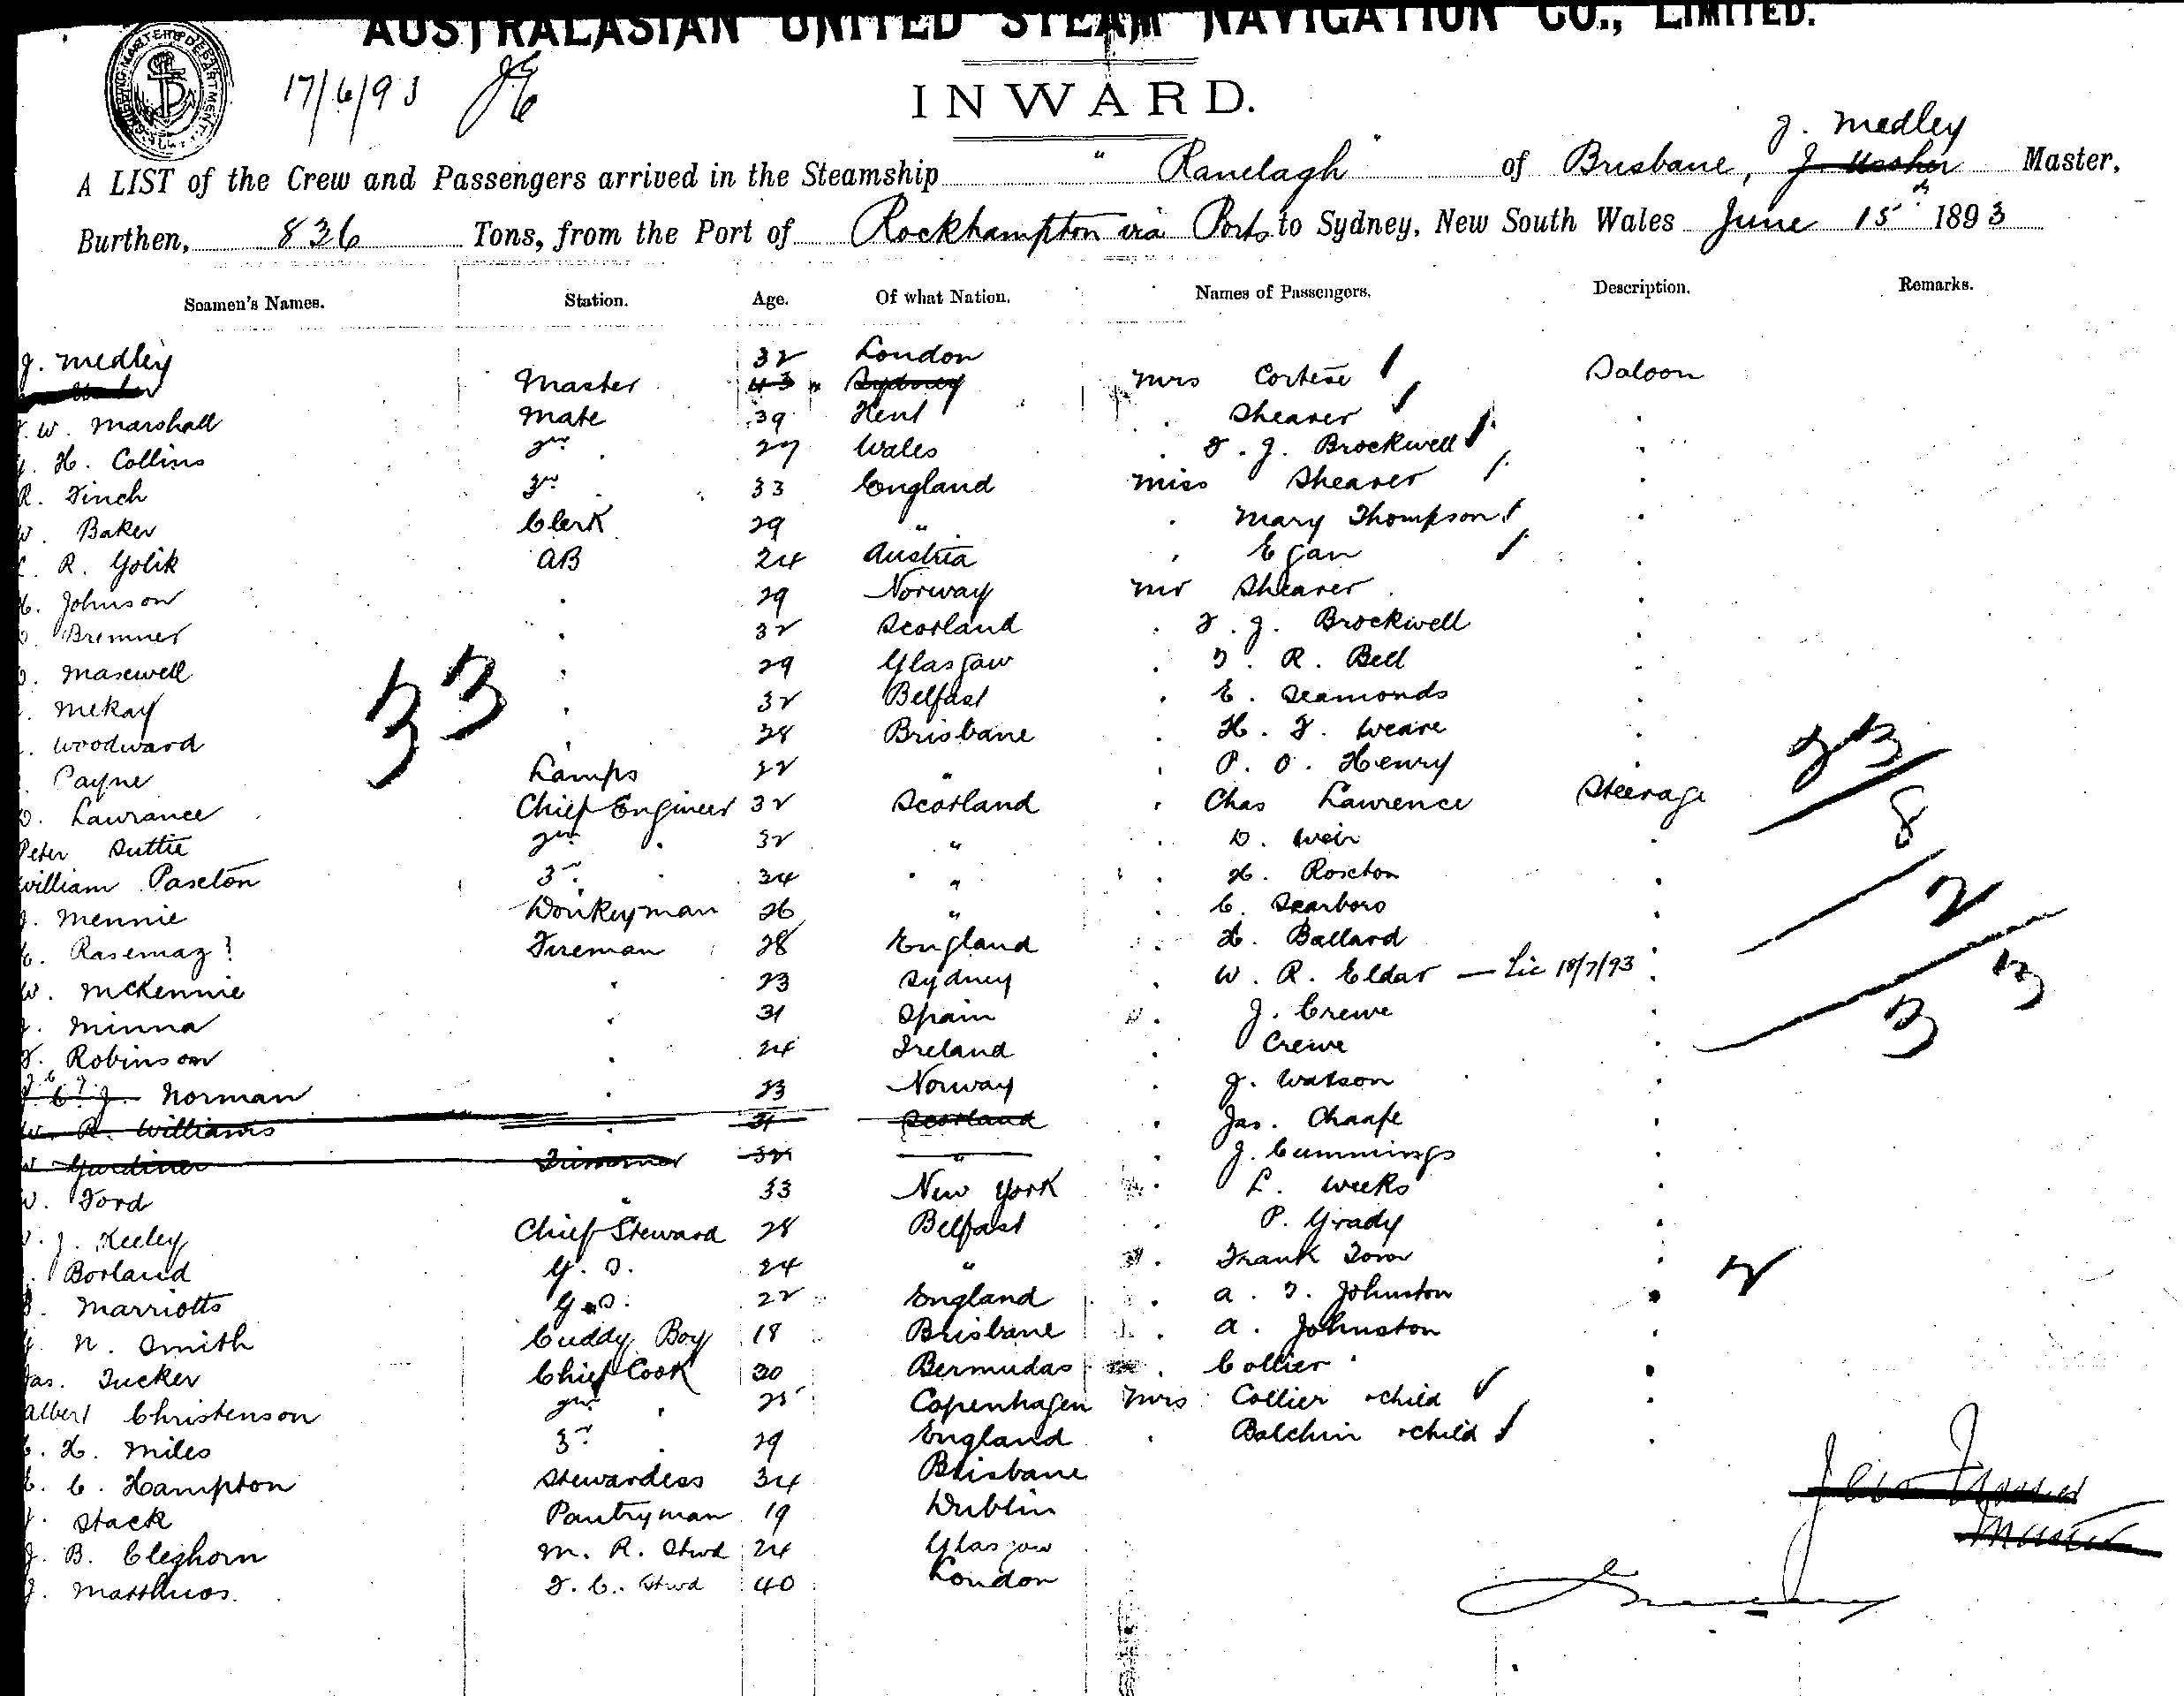 AUSTRALASIAN UNITED STEAM NAVIGATION CO., LIMITED.
SHIPPING MASTER'S DEPARTMENT
17/6/93
INWARD.
J. Medley
A LIST of the Crew and Passengers arrived in the Steamship "Ranelagh" of Brisbane, Master,
Burthen, 836 Tons, from the Port of Rockhampton via Ports to Sydney, New South Wales June 15th 1893
Seamen's Names. Station. Age. Of what Nation. Names of Passengers. Description. Remarks.
J. Medley 32 London
Master 43 Sydney Mrs Cortese Saloon
W. Marshall Mate 39 Kent . Shearer .
H. Collins 2nd . 27 Wales . F. J. Brockwell .
R. Finch 3rd . 33 England Miss Shearer .
W. Baker Clerk 29 " . Mary Thompson .
R. Golik AB 24 Austria . Egan .
Johnson . 29 Norway Mr Shearer .
Bremner . 32 Scotland . F. J. Brockwell .
Maxwell . 29 Glasgow . T. R. Bell .
McKay . 32 Belfast . E. Seamonds .
Woodward . 28 Brisbane . H. F. Weare .
Payne Lamps 22 " . P. O. Henry .
Lawrance Chief Engineer 32 Scotland . Chas Lawrence Steerage
Peter Suttie 2nd . 32 " . D. Weir .
William Paseton 3rd . 34 " . H. Roseton .
J. Mennie Donkeyman 26 " . C. Scarboro .
Rasemaz? Fireman 28 England . H. Ballard .
W. McKennie . 23 Sydney . W. R. Eldar — Lic 18/7/93 .
J. Minna . 31 Spain . J. Crewe .
F. Robinson . 24 Ireland . Crewe .
Norman . 23 Norway . J. Watson .
W. R. Williams . 31 Scotland . Jas. Chaafe .
W Gardiner Trimmer 32 " . J. Cummings .
W. Ford " 33 New York . L. Weeks .
J. Keeley Chief Steward 28 Belfast . P. Grady .
Borland G. S. 24 " . Frank Tom .
Marriotts G. S. 22 England . A. T. Johnston .
N. Smith Cuddy Boy 18 Brisbane . A. Johnston .
Jas. Tucker Chief Cook 30 Bermudas . Collier .
Albert Christenson 2nd . 25 Copenhagen Mrs Collier + child .
H. Miles 3rd . 29 England . Balchin + child .
E. C. Hampton Stewardess 34 Brisbane
Stack Pantryman 19 Dublin
J. B. Cleghorn M. R. Stwd 24 Glasgow
J. Matthews. F. C. Stwd 40 London
33
23
8
2
33
2
Master